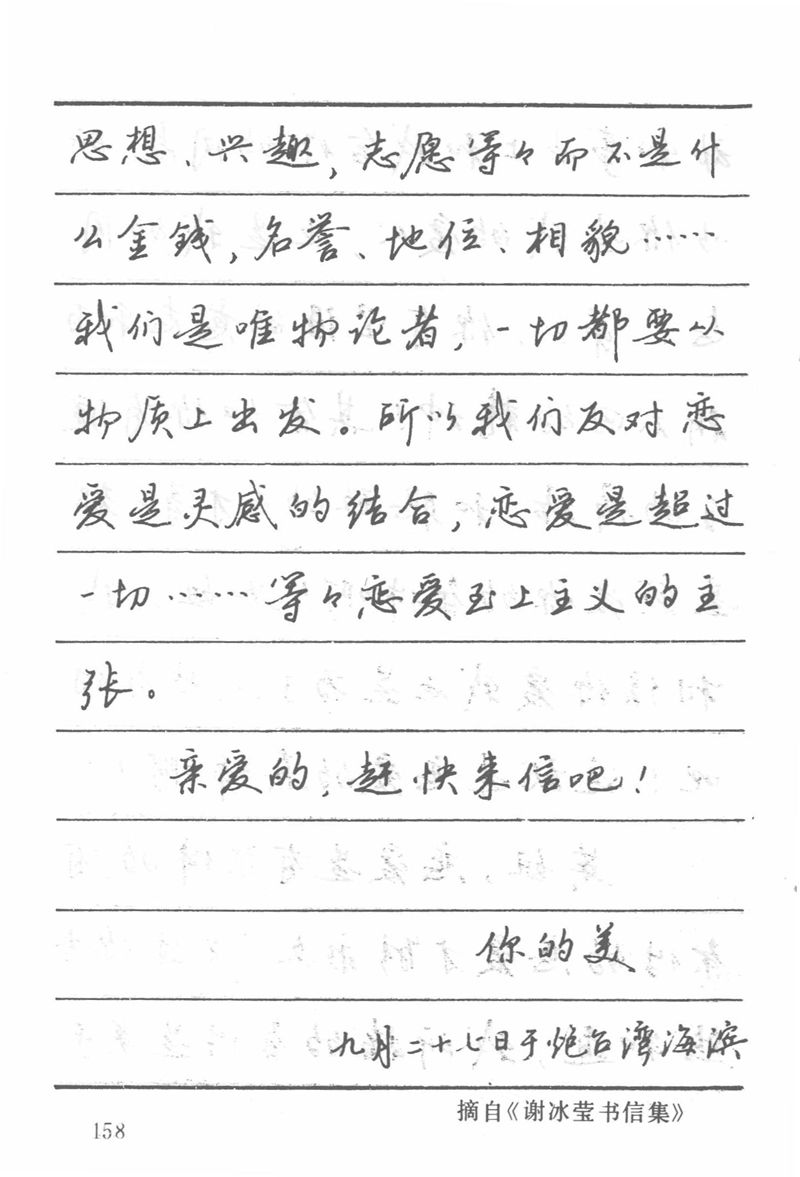 思想、兴趣，志愿等々而不是什
么金钱，名誉、地位、相貌……
我们是唯物论者，一切都要从
物质上出发。所以我们反对恋
爱是灵感的结合，恋爱是超过
一切……等々恋爱至上主义的主
张。
亲爱的，赶快来信吧！
你的美
九月二十七日于炮台湾海滨
摘自《谢冰莹书信集》
158